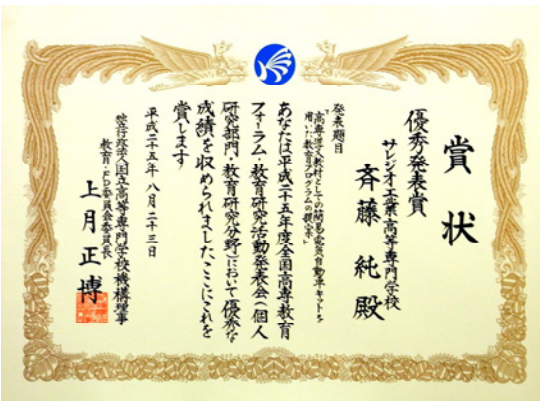 賞状
優秀発表賞
サレジオ工業高等専門学校
斉藤純殿
発表題目
「高専導入教材としての簡易電気自動車キットを
用いた教育プログラムの提案」
あなたは平成二十五年度全国高専教育
フォーラム・教育研究活動発表会(個人
研究部門・教育研究分野)において優秀な
成績を収められました、ここにこれを
賞します
平成二十五年八月二十三日
独立行政法人国立高等専門学校機構理事
教育・FD委員会委員長
上月正博